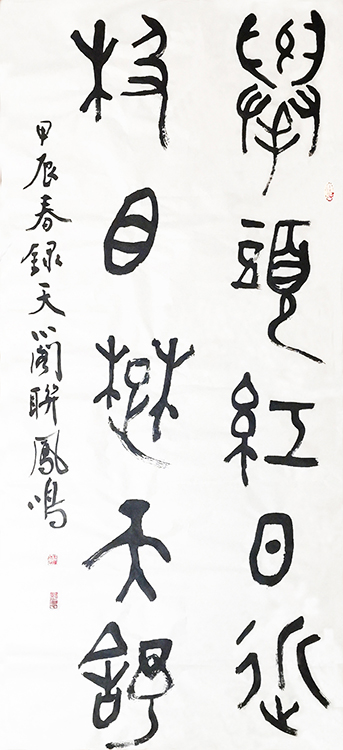 舉頭紅日近
极目楚天舒
甲辰春録天心閣聯鳳鳴